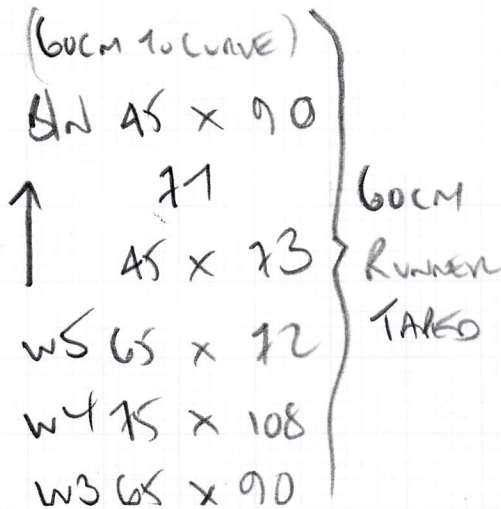 (60CM TO CURVE)
45 x 90
71
45 x 73
W5 65 x 72
W4 75 x 108
W3 65 x 90
60CM
RUNNER
TAPED